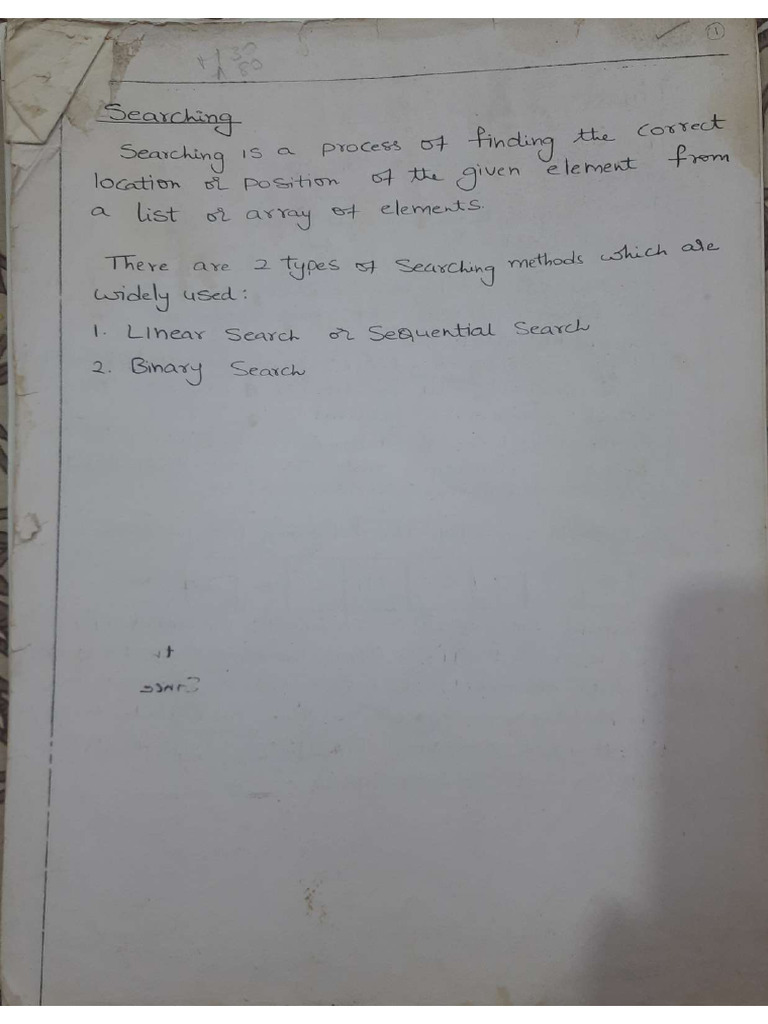 1
Searching
Searching is a process of finding the correct
location or position of the given element from
a list or array of elements.
There are 2 types of searching methods which are
widely used:
1. Linear Search or Sequential Search
2. Binary Search